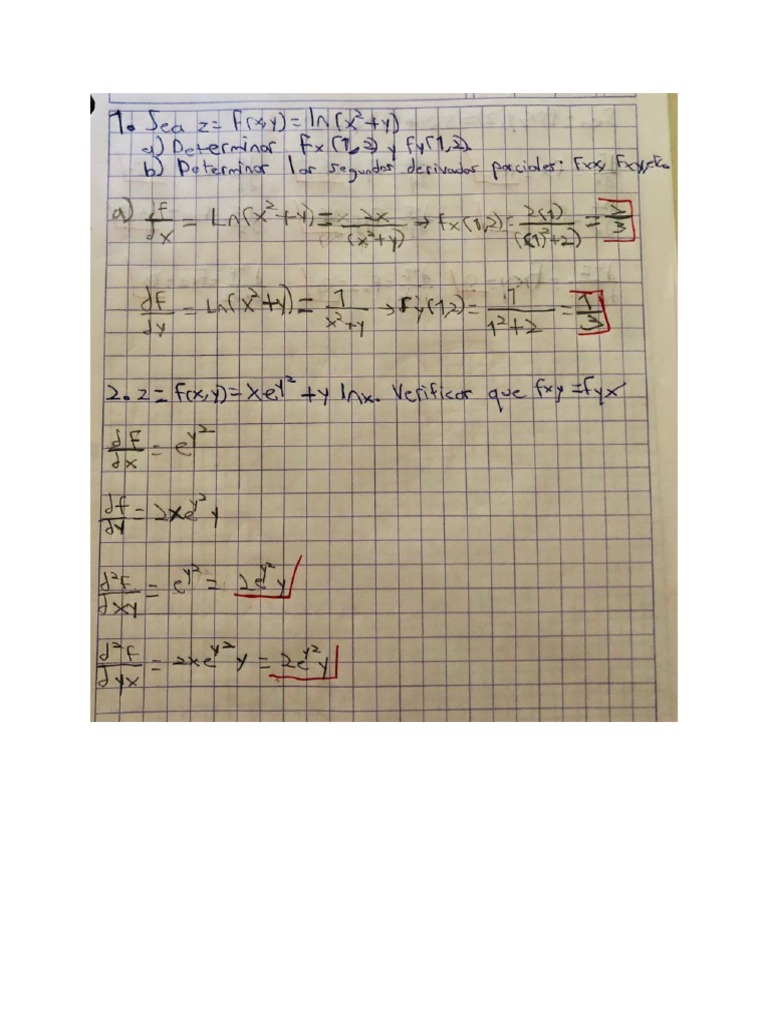 1. Sea z = f(x,y) = ln(x²+y)
a) Determinar Fx(1,2) y Fy(1,2)
b) Determinar las segundas derivadas parciales: Fxx, Fxy, etc.
a) dF/dx = Ln(x²+y) = 2x/(x²+y) → fx(1,2) = 2(1)/((1)²+2) = 2/3
dF/dy = Ln(x²+y) = 1/(x²+y) → Fy(1,2) = 1/(1²+2) = 1/3
2. z = f(x,y) = xe^y² + y lnx. Verificar que fxy = fyx
dF/dx = e^y²
df/dy = 2xe^y² y
d²F/dxy = e^y² = 2e^y² y
d²F/dyx = 2xe^y² y = 2e^y² y